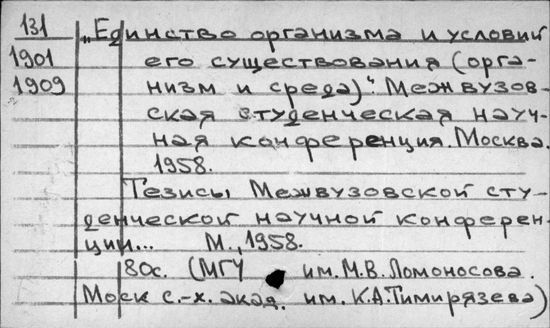 131 „Единство организма и условий
1901 его существования (орга-
1909 низм и среда)“. Межвузов-
ская студенческая науч-
ная конференция. Москва.
1958.
Тезисы Межвузовской сту-
денческой научной конферен-
ции... М., 1958.
80с. (МГУ им. М.В. Ломоносова.
Моск с.-х. акад. им. К.А. Тимирязева)